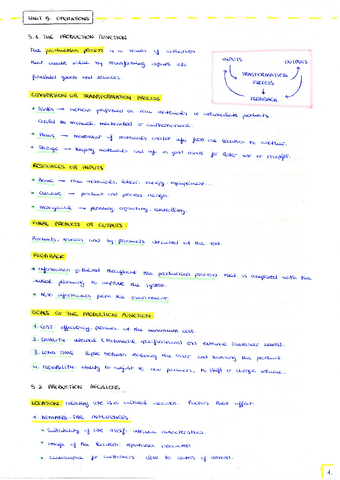 UNIT 5: OPERATIONS
5.1. THE PRODUCTION FUNCTION
The production process is a series of activities
that create value by transforming inputs into
finished goods and services.
INPUTS
OUTPUTS
TRANSFORMATION
PROCESS
FEEDBACK
CONVERSION OR TRANSFORMATION PROCESS
→ actions performed on raw materials or intermediate products.
Could be manual, mechanized or
Flows → movement of materials and/or info from one location to another.
Storage → keeping materials and info in good
RESOURCES OR INPUTS
Basic → raw materials, labor, energy, equipment...
→ product and process design.
→ planning, organizing, controlling.
FINAL PRODUCTS OR OUTPUTS
Products, services and by-products obtained at the end.
FEEDBACK
Information gathered throughout the production process that is compared with the
initial planning to improve the system.
New information from the environment.
GOALS OF THE PRODUCTION FUNCTION
1. COST: efficiency, produce at the minimum cost.
2. QUALITY: internal (technical specifications) and external (customer needs).
3. LEAD TIME: lapse between receiving the order and the product.
4. FLEXIBILITY: ability to adjust to new products, to shift or change volume.
5.2. PRODUCTION DECISIONS
LOCATION: selecting site is a critical decision. Factors that affect:
1. DEMAND-SIDE INFLUENCES
Suitability of site itself: intrinsic characteristics.
Image of the location: reputation associated
Convenience for customers: close to centers of demand.
1